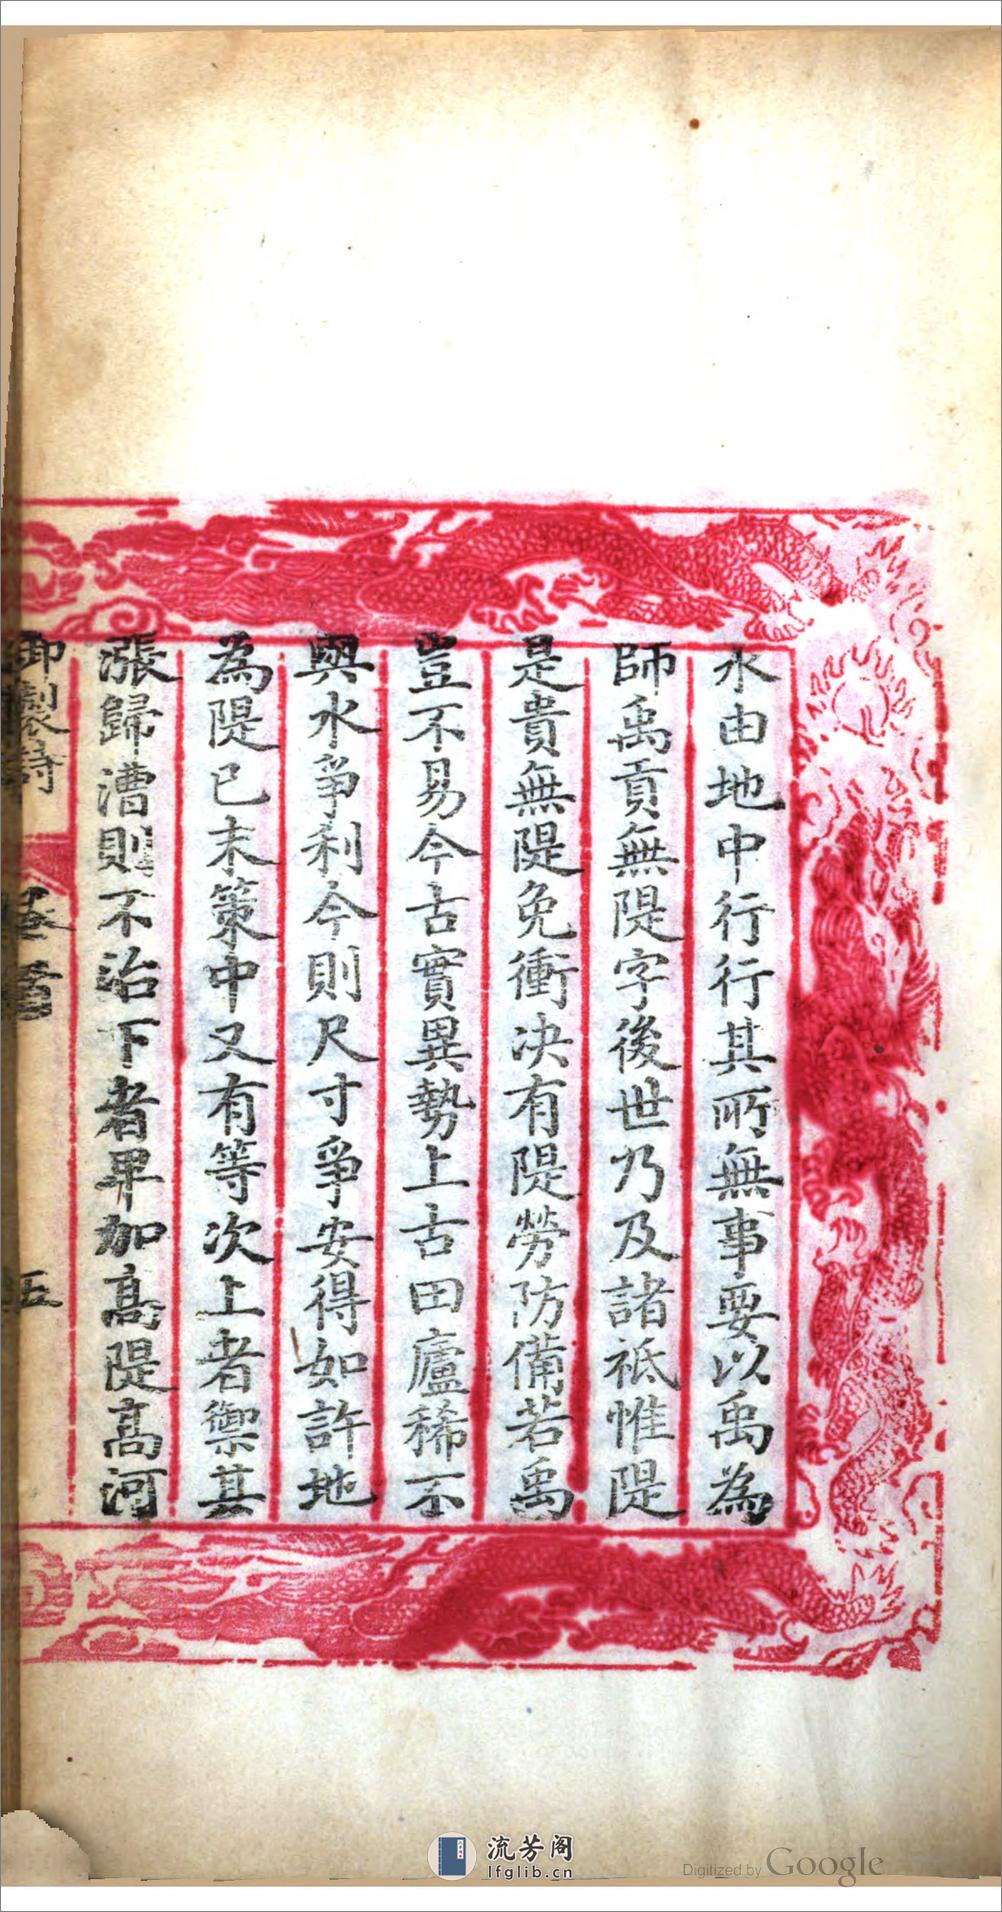 水由地中行行其所無事要以禹為
師禹貢無隄字後世乃及諸祗惟隄
是貴無隄免衝决有隄勞防備若禹
豈不易今古實異勢上古田廬稀不
與水爭利今則尺寸爭安得如許地
為隄已末策中又有等次上者禦其
漲歸漕則不治下者卑加高隄高河
御製詩
卷首
五
流芳阁
lfglib.cn
Digitized by Google